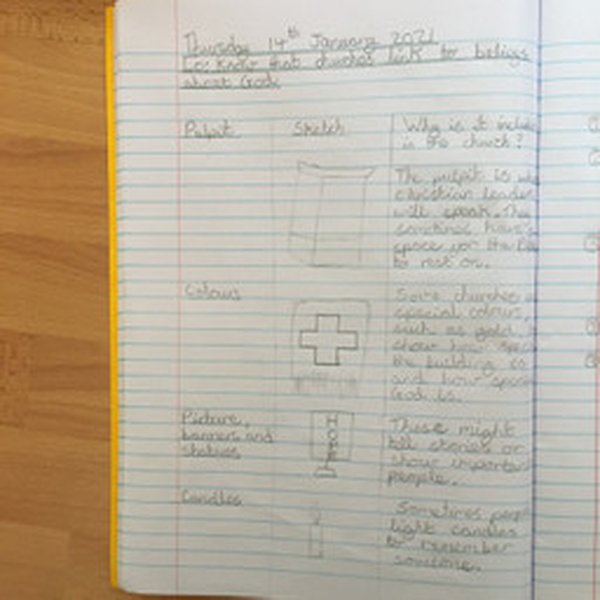 Thursday 14th January 2021
Lo: Know that churches link to beliefs
about God.
Pulpit
Sketch
Why is it
in the church?
The pulpit is
christian leader
will speak. The
sometimes have
space for the
to rest on.
Colours
Some churches
special colours,
such as gold
show how
the building
and how
God is.
Picture,
banners and
statues
HOPE
These might
tell stories or
show important
people.
Candles
Sometimes
light candles
to remember
someone.